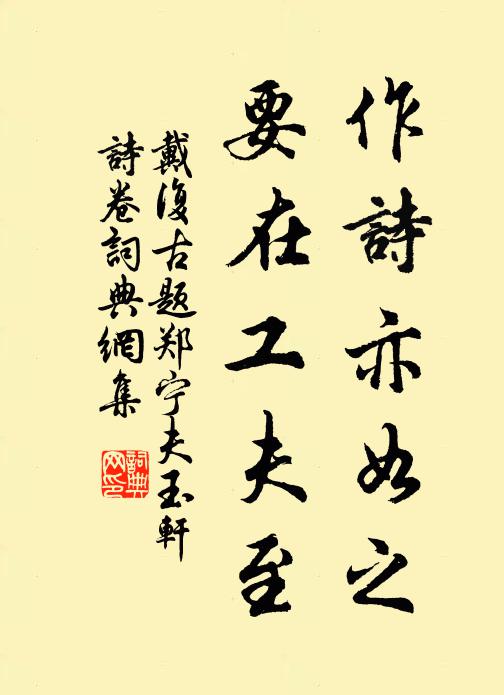 作詩亦如之
要在工夫至
戴復古题郑宁夫玉軒
詩卷詞典網集
詞典
网印